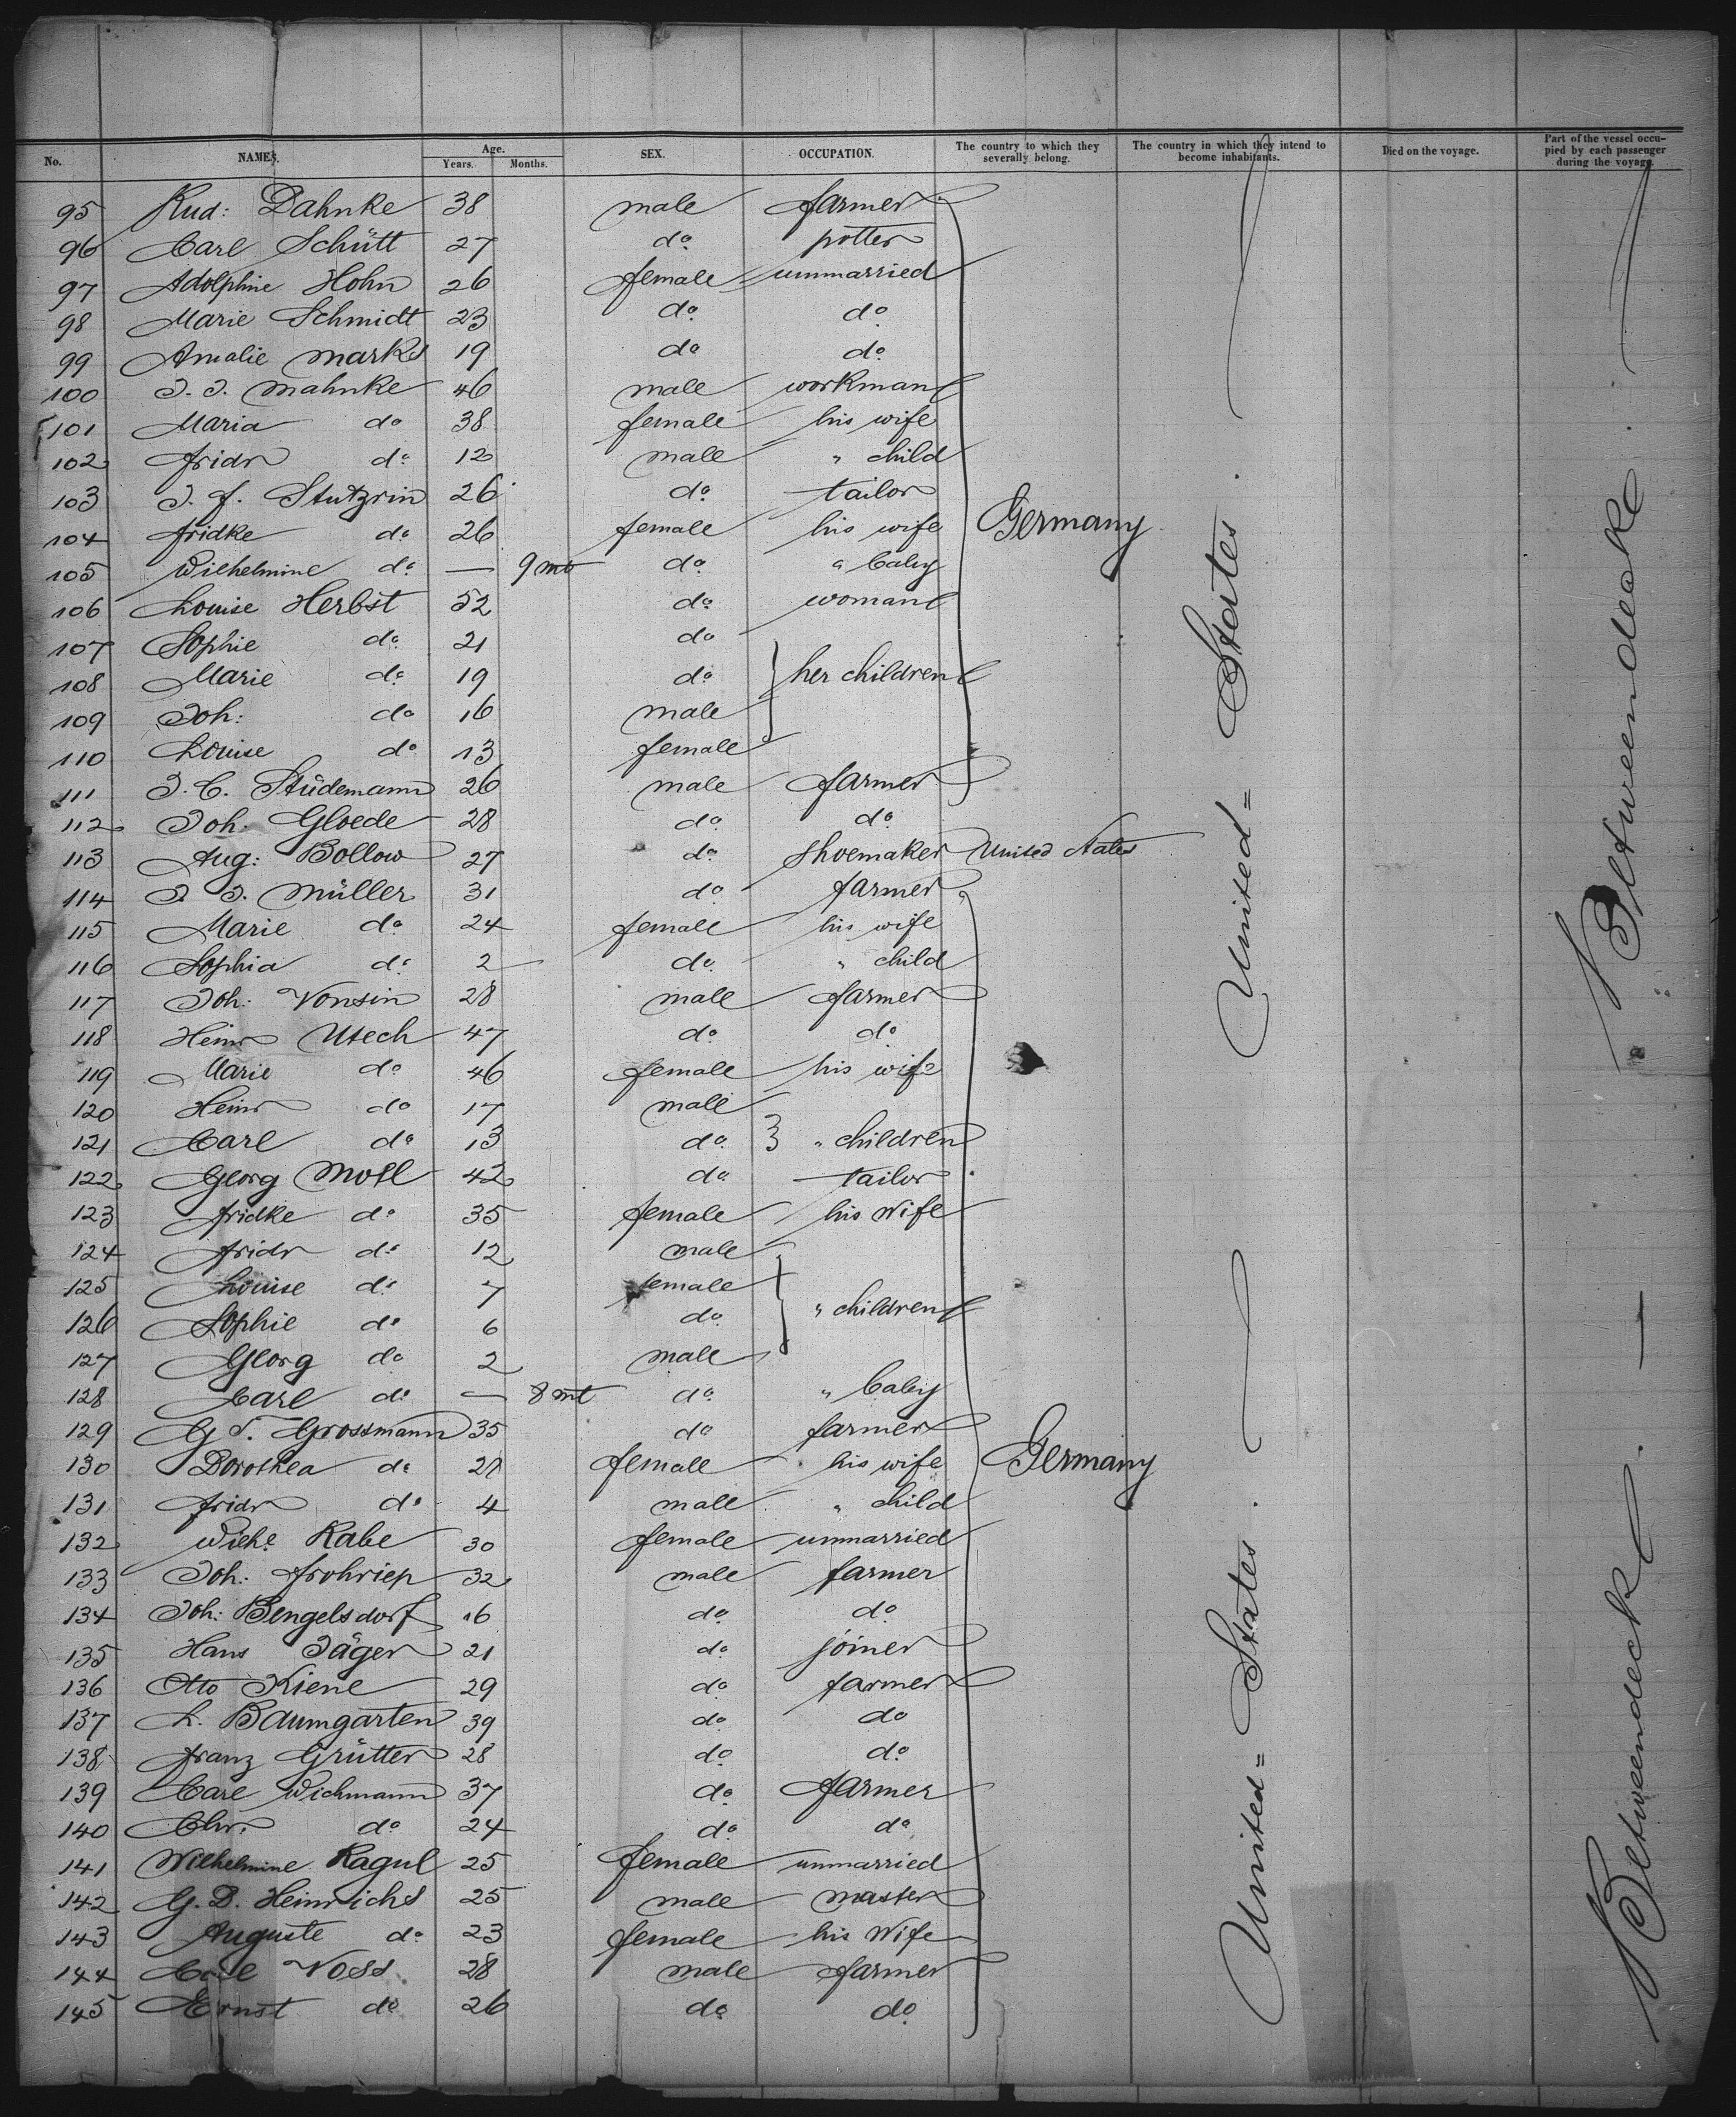 No. NAMES. Age. Years. Months. SEX. OCCUPATION. The country to which they severally belong. The country in which they intend to become inhabitants. Died on the voyage. Part of the vessel occupied by each passenger during the voyage.
95 Rud: Dahnke 38 male farmer
96 Carl Schütt 27 do potter
97 Adolphine Hohn 26 female unmarried
98 Marie Schmidt 23 do do
99 Amalie Marks 19 do do
100 J. J. Mahnke 46 male workman
101 Maria do 38 female his wife
102 Fridr do 12 male " child
103 J. F. Stutzrin 26 do tailor
104 Fridke do 26 female his wife Germany
105 Wilhelmine do — 9 mo do " baby
106 Louise Herbst 52 do woman
107 Sophie do 21 do
108 Marie do 19 do her children
109 Joh: do 16 male
110 Louise do 13 female
111 J. C. Stüdemann 26 male farmer
112 Joh. Gloede 28 do do
113 Aug: Bollow 27 do shoemaker United States
114 J. J. Müller 31 do farmer
115 Marie do 24 female his wife
116 Sophia do 2 do " child
117 Joh: Vonsin 28 male farmer
118 Heinr Utech 47 do do
119 Marie do 46 female his wife
120 Heinr do 17 male
121 Carl do 13 do " children
122 Georg Moll 42 do tailor
123 Fridke do 35 female his Wife
124 Fridr do 12 male
125 Louise do 7 female
126 Sophie do 6 do " children
127 Georg do 2 male
128 Carl do — 8 mt do " baby
129 G. T. Grossmann 35 do farmer
130 Dorothea do 28 female his wife Germany
131 Fridr do 4 male " child
132 Wilhe Rabe 30 female unmarried
133 Joh: Frohriep 32 male farmer
134 Joh: Bengelsdorf 16 do do
135 Hans Jäger 21 do joiner
136 Otto Kiene 29 do farmer
137 L. Baumgarten 39 do do
138 Franz Grütter 28 do do
139 Carl Wichmann 37 do farmer
140 Chr. do 24 do do
141 Wilhelmine Ragul 25 female unmarried
142 G. D. Heinrichs 25 male master
143 Auguste do 23 female his Wife
144 Carl Voss 28 male farmer
145 Ernst do 26 do do
United= States.
United= States.
Betweendeck.
Betweendeck.